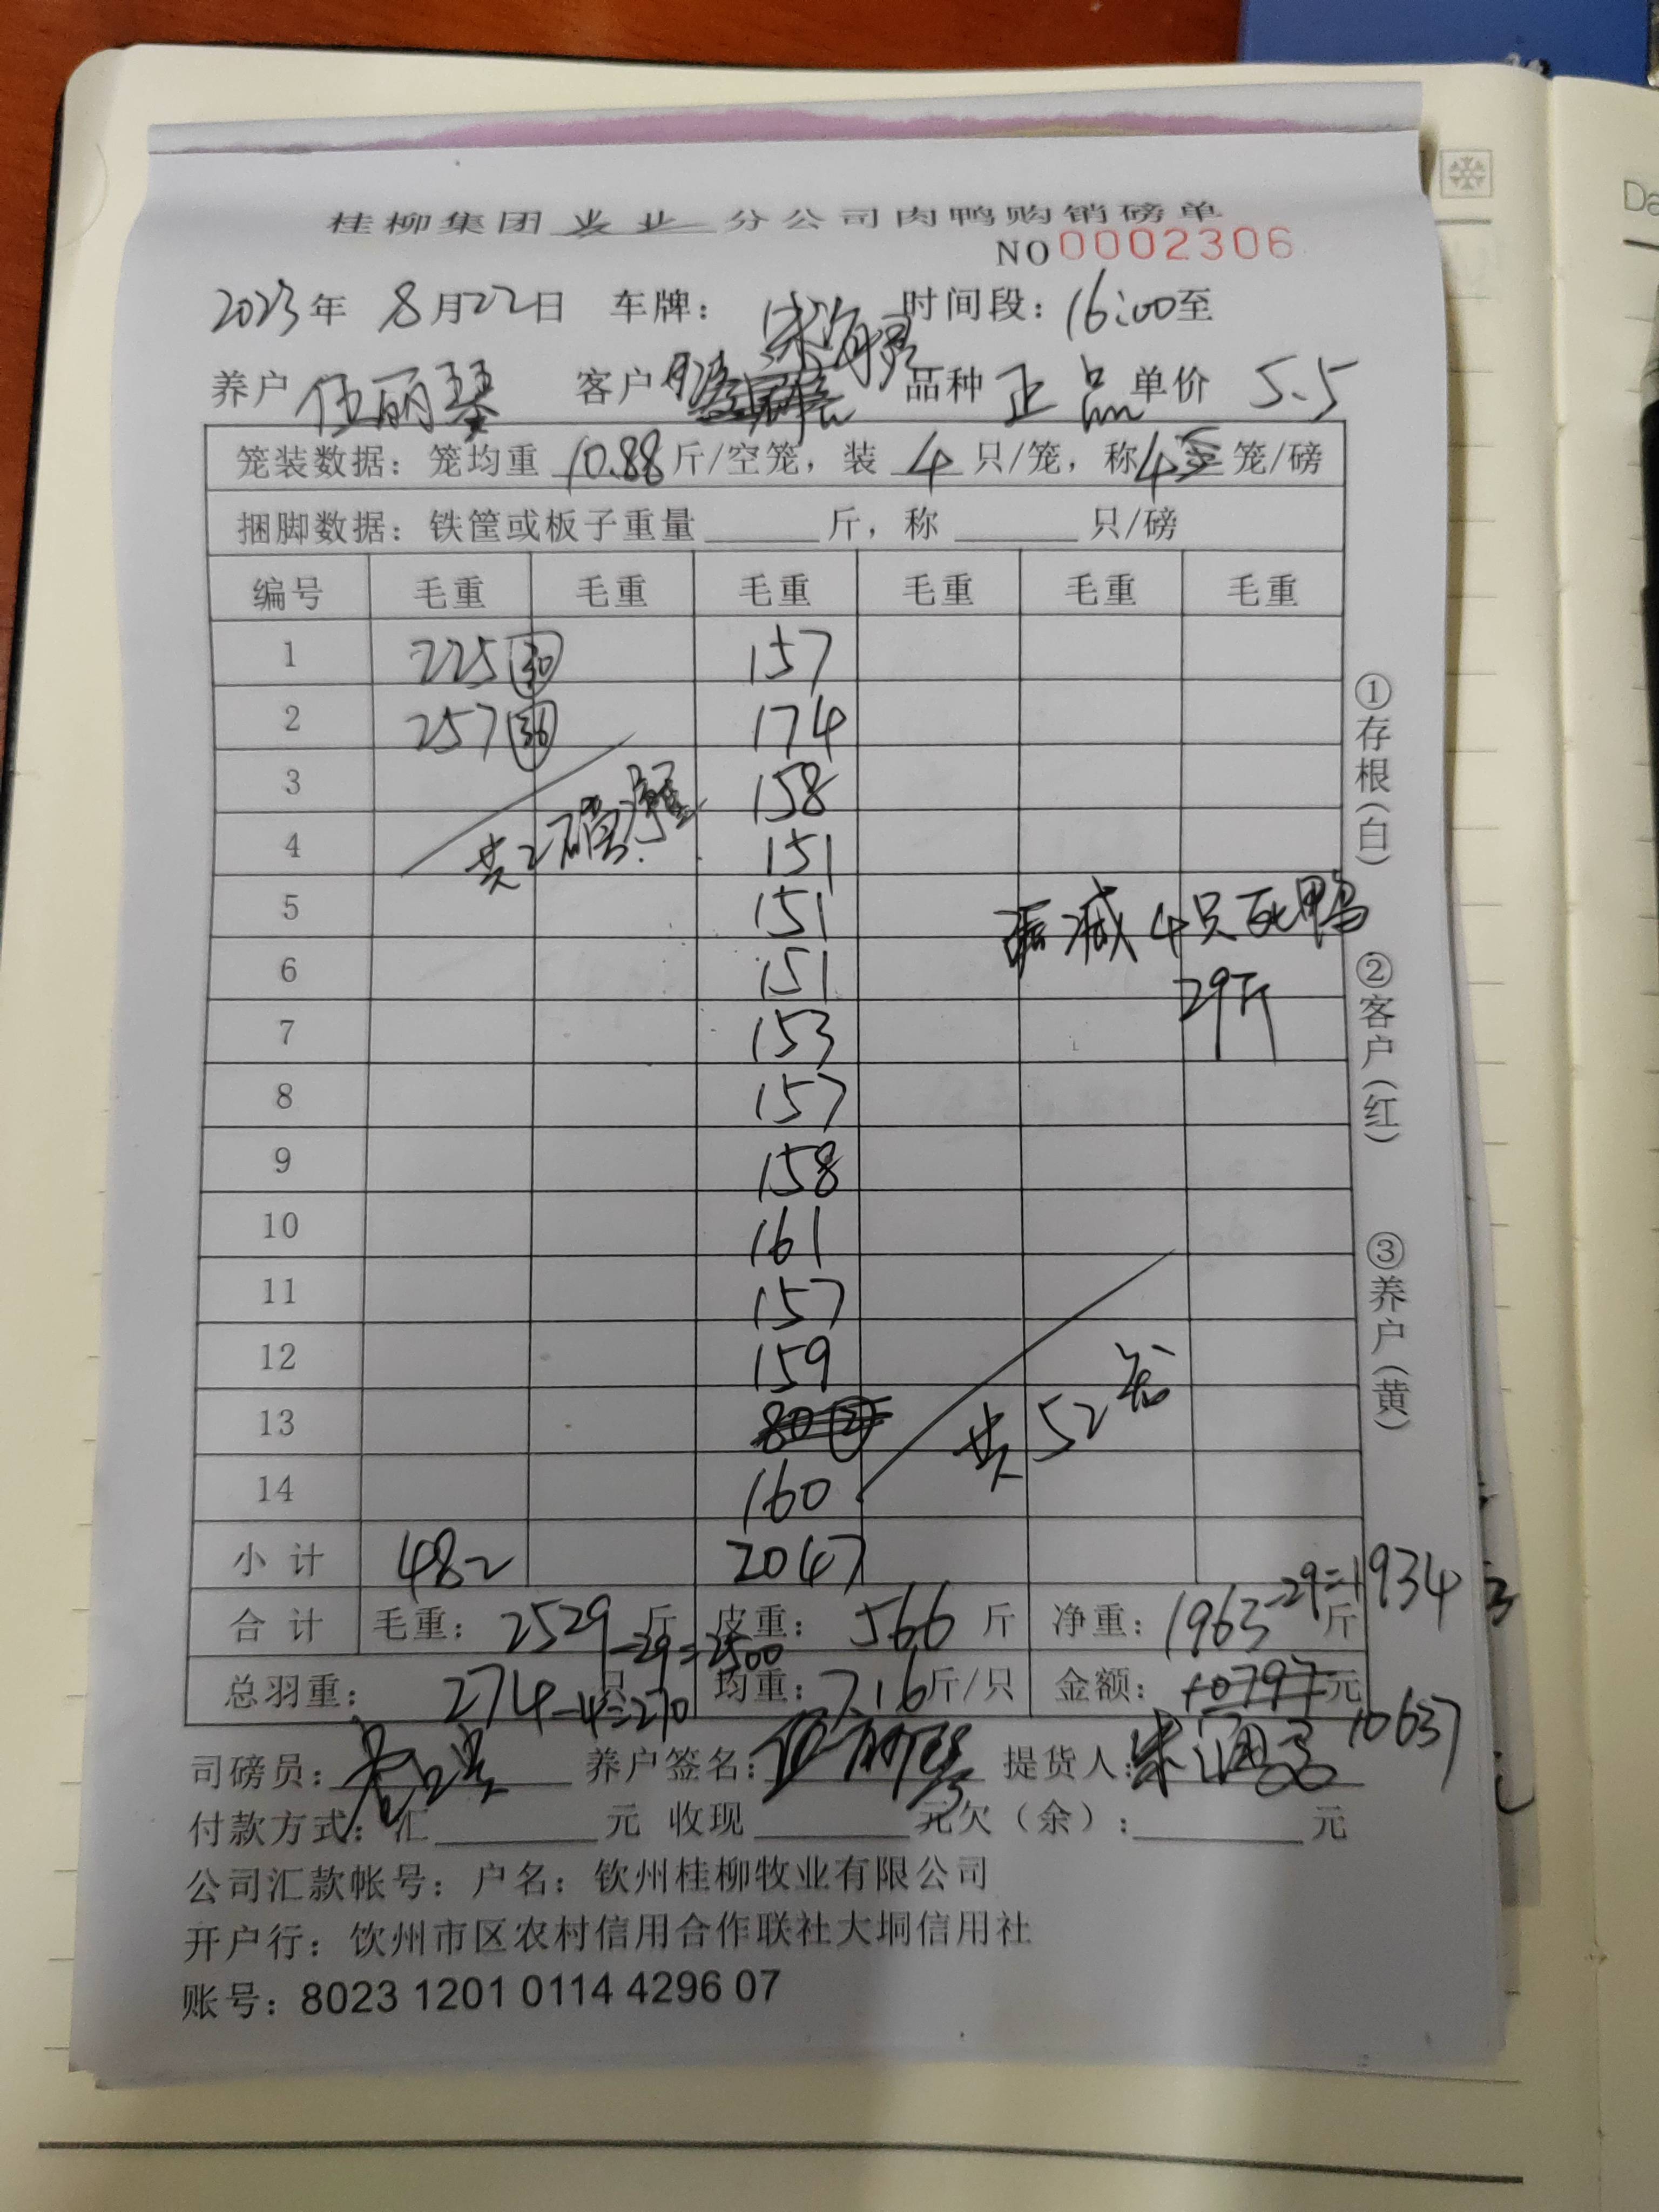 桂柳集团 兴业 分公司肉鸭购销磅单
NO 0002306
2023年 8月22日 车牌： 时间段：16:00至
养户 伍丽琴 客户 品种 正品 单价 5.5
笼装数据：笼均重 10.88 斤/空笼，装 4 只/笼，称 4 笼/磅
捆脚数据：铁筐或板子重量 斤，称 只/磅
编号 毛重 毛重 毛重 毛重 毛重 毛重
1 225 30 157
2 257 36 174
3 158
4 共2磅 151
5 151 减4只死鸭
6 151 29斤
7 153
8 157
9 158
10 161
11 157
12 159
13 80 2 共52笼
14 160
小计 482 2047
合计 毛重：2529 斤 -29=2500 皮重：566 斤 净重：1963 斤 -29=1934
总羽重：274 只 -4=270 均重：7.16 斤/只 金额：10797 元 10637
司磅员： 养户签名：伍丽琴 提货人：
付款方式：汇 元 收现 元欠（余）： 元
公司汇款帐号：户名：钦州桂柳牧业有限公司
开户行：饮州市区农村信用合作联社大垌信用社
账号：8023 1201 0114 4296 07
①存根（白）
②客户（红）
③养户（黄）
Da